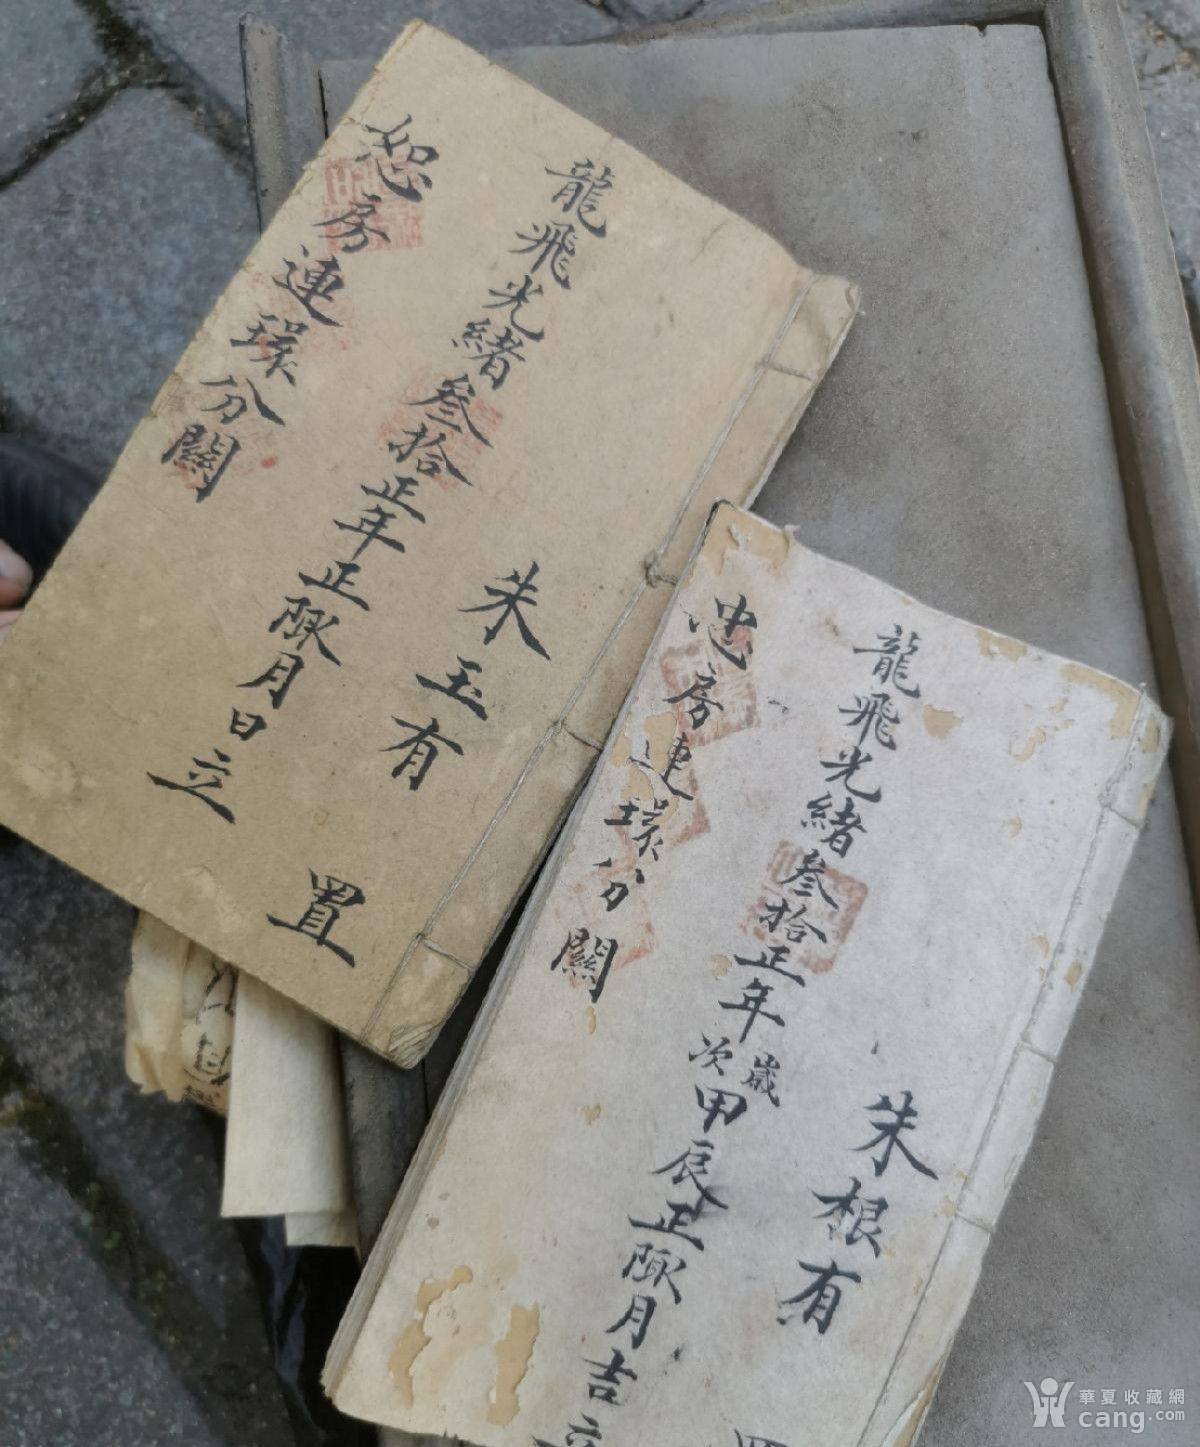 朱玉有 置
龍飛光緒叁拾正年正陬月日立
恕房連環分關
朱根有
龍飛光緒叁拾正年歲次甲辰正陬月吉立
忠房連環分關
華夏收藏網
cang.com